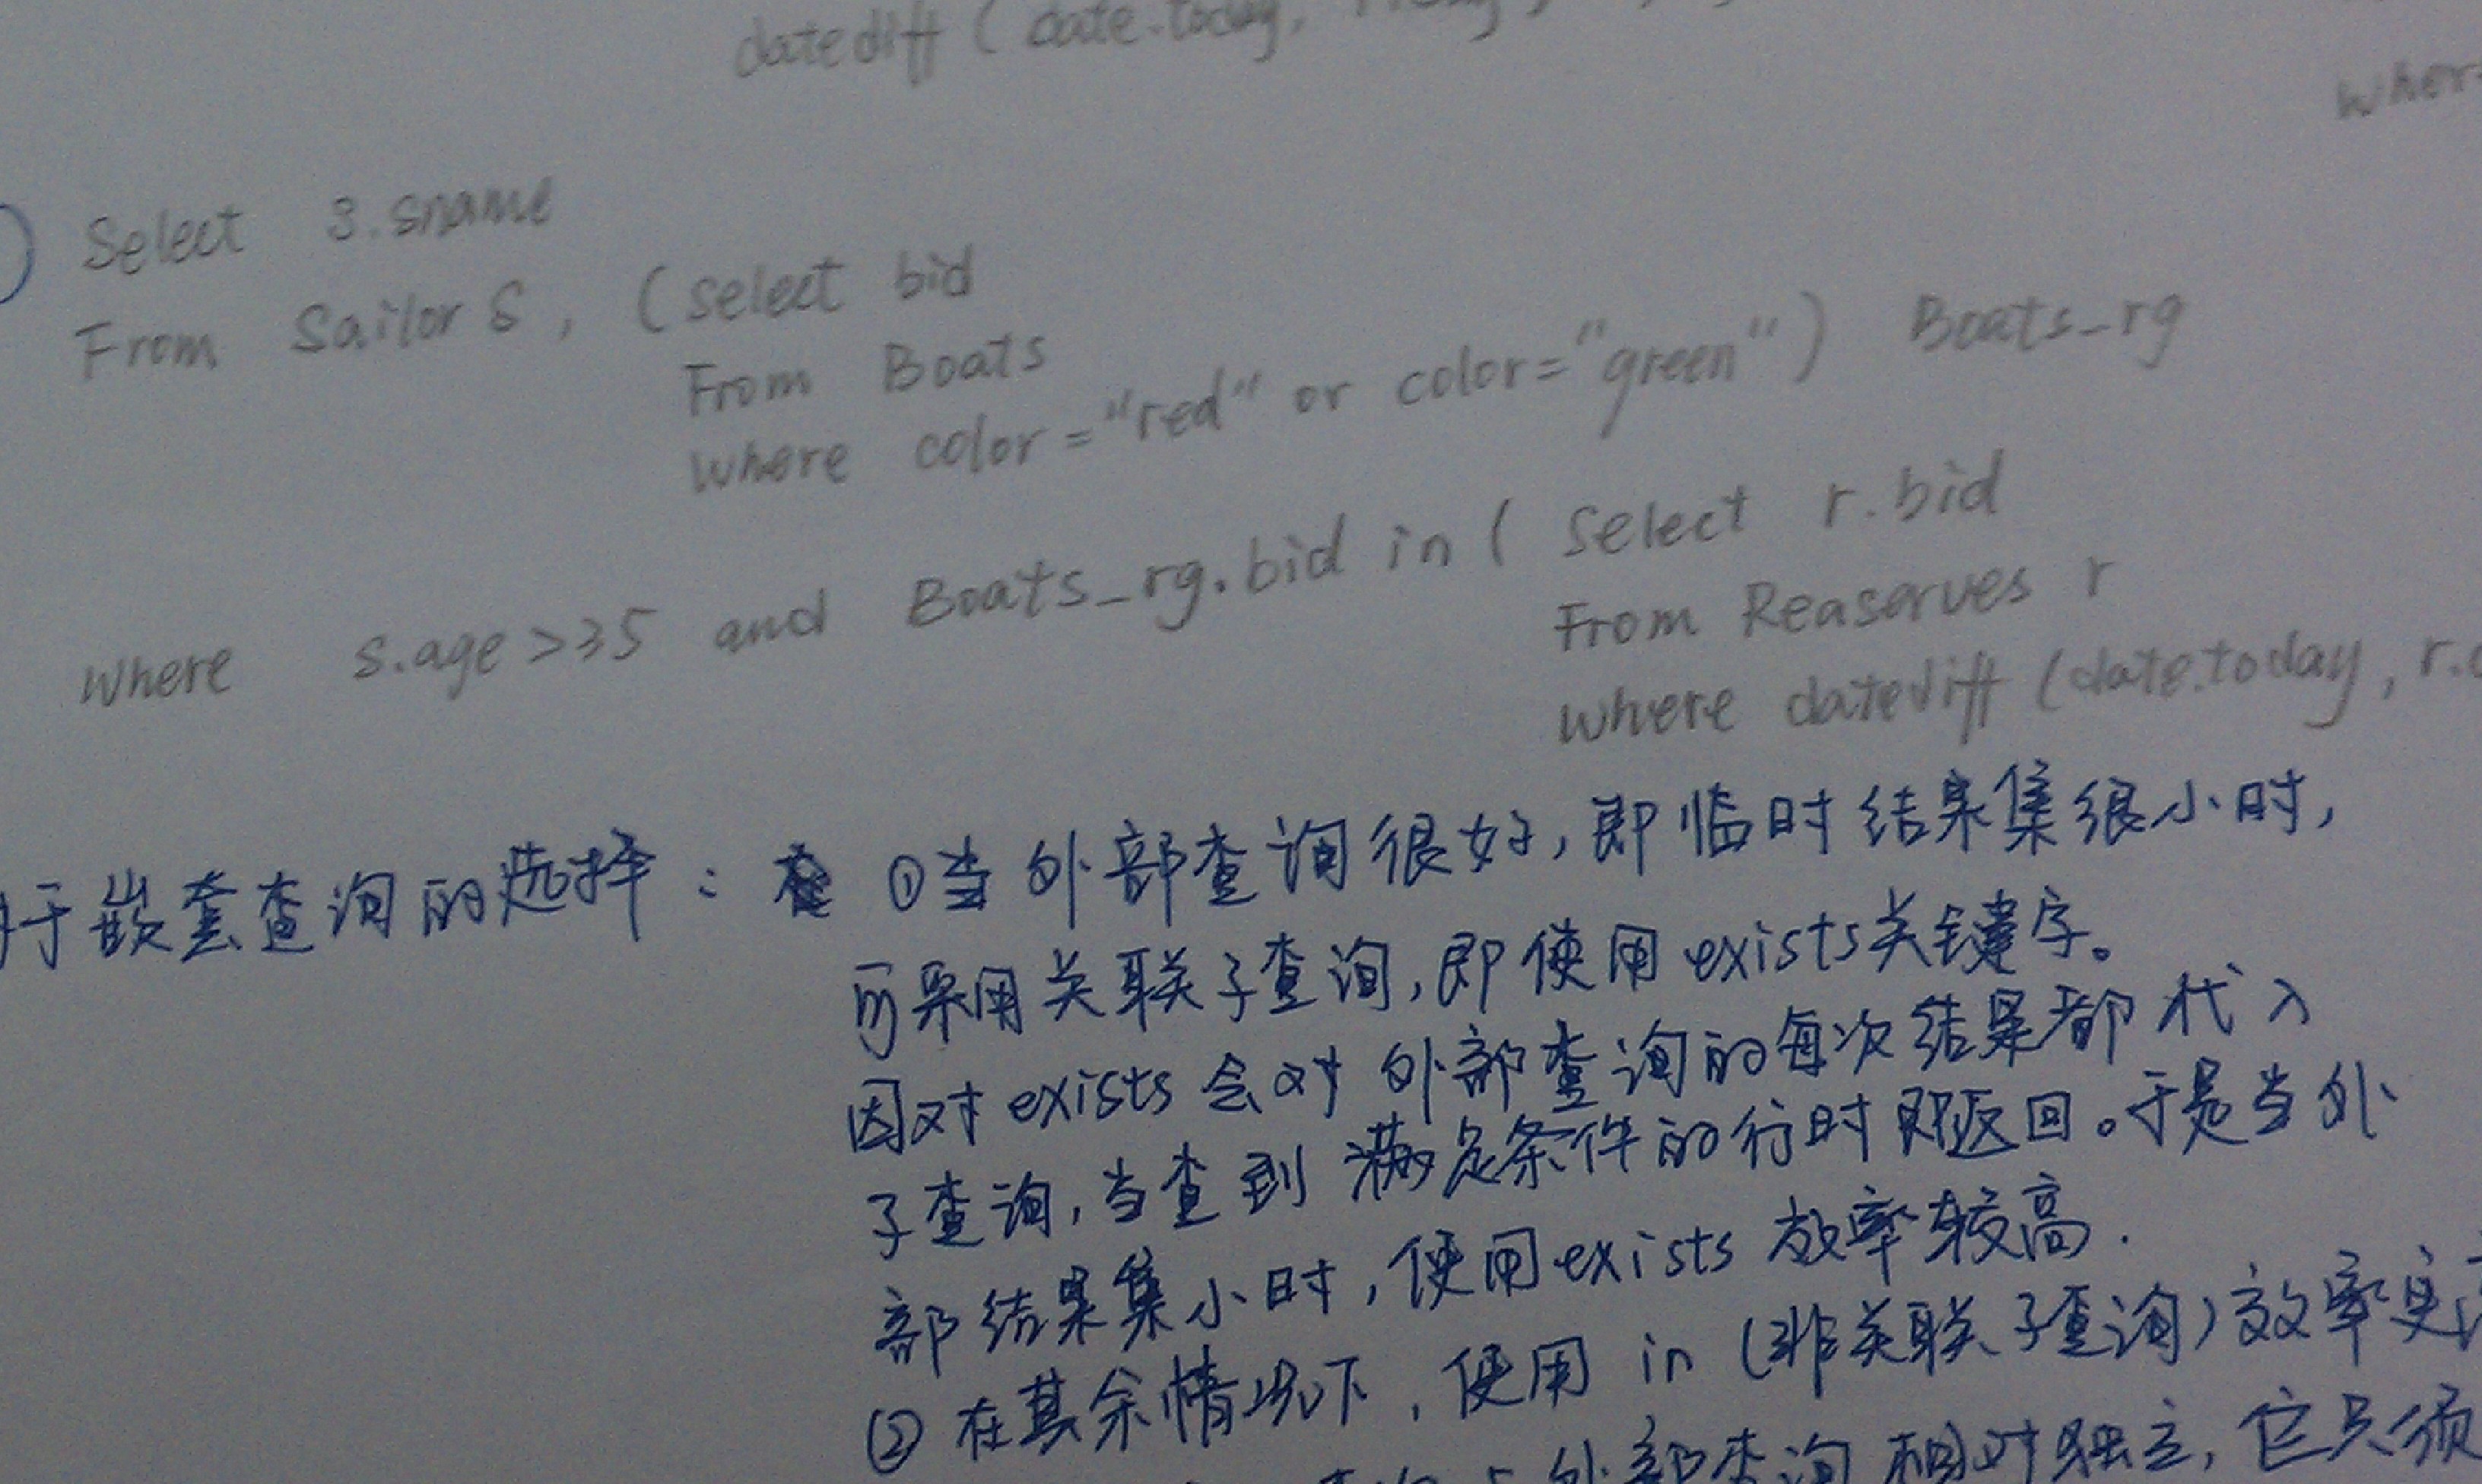 datediff ( date.today,
wher
Select s.sname
From Sailor S , ( select bid
From Boats
where color = "red" or color = "green" ) Boats_rg
where s.age >35 and Boats_rg.bid in ( select r.bid
From Reaserves r
where datediff (date.today, r.
于嵌套查询的选择 : ①当外部查询很好,即临时结果集很小时,
可采用关联子查询,即使用exists关键字。
因对exists会对外部查询的每次结果都代入
子查询,当查到满足条件的行时即返回。于是当外
部结果集小时,使用exists效率较高.
②在其余情况下,使用in(非关联子查询)效率更
外部查询相对独立,它只须